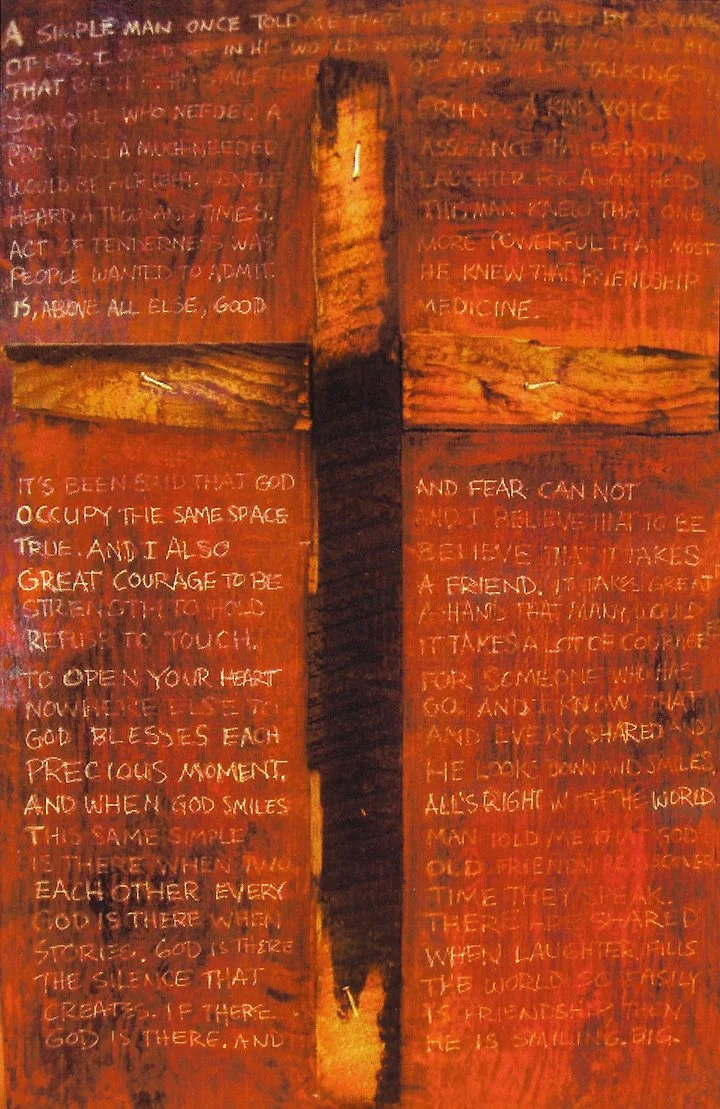 A SIMPLE MAN ONCE TOLD ME THAT LIFE IS BEST LIVED BY SERVING
OTHERS. I COULD SEE IN HIS WORLD-WEARY EYES THAT HE HAD LIVED BY
THAT BELIEF. HIS SMILE TOLD OF LONG TALKING TO
SOMEONE WHO NEEDED A FRIEND, A KIND VOICE
PROVIDING A MUCH-NEEDED ASSURANCE THAT EVERYTHING
WOULD BE ALRIGHT. GENTLE LAUGHTER FOR A JOKE HE'D
HEARD A THOUSAND TIMES. THIS MAN KNEW THAT ONE
ACT OF TENDERNESS WAS MORE POWERFUL THAN MOST
PEOPLE WANTED TO ADMIT. HE KNEW THAT FRIENDSHIP
IS, ABOVE ALL ELSE, GOOD MEDICINE.
IT'S BEEN SAID THAT GOD AND FEAR CAN NOT
OCCUPY THE SAME SPACE AND I BELIEVE THAT TO BE
TRUE. AND I ALSO BELIEVE THAT IT TAKES
GREAT COURAGE TO BE A FRIEND. IT TAKES GREAT
STRENGTH TO HOLD A HAND THAT MANY WOULD
REFUSE TO TOUCH. IT TAKES A LOT OF COURAGE
TO OPEN YOUR HEART FOR SOMEONE WHO HAS
NOWHERE ELSE TO GO. AND I KNOW THAT
GOD BLESSES EACH AND EVERY SHARED AND
PRECIOUS MOMENT. HE LOOKS DOWN AND SMILES,
AND WHEN GOD SMILES ALL'S RIGHT WITH THE WORLD.
THIS SAME SIMPLE MAN TOLD ME THAT GOD
IS THERE WHEN TWO OLD FRIENDS REDISCOVER
EACH OTHER EVERY TIME THEY SPEAK.
GOD IS THERE WHEN THERE ARE SHARED
STORIES. GOD IS THERE WHEN LAUGHTER FILLS
THE SILENCE THAT THE WORLD SO EASILY
CREATES. IF THERE IS FRIENDSHIP THEN
GOD IS THERE. AND HE IS SMILING. BIG.